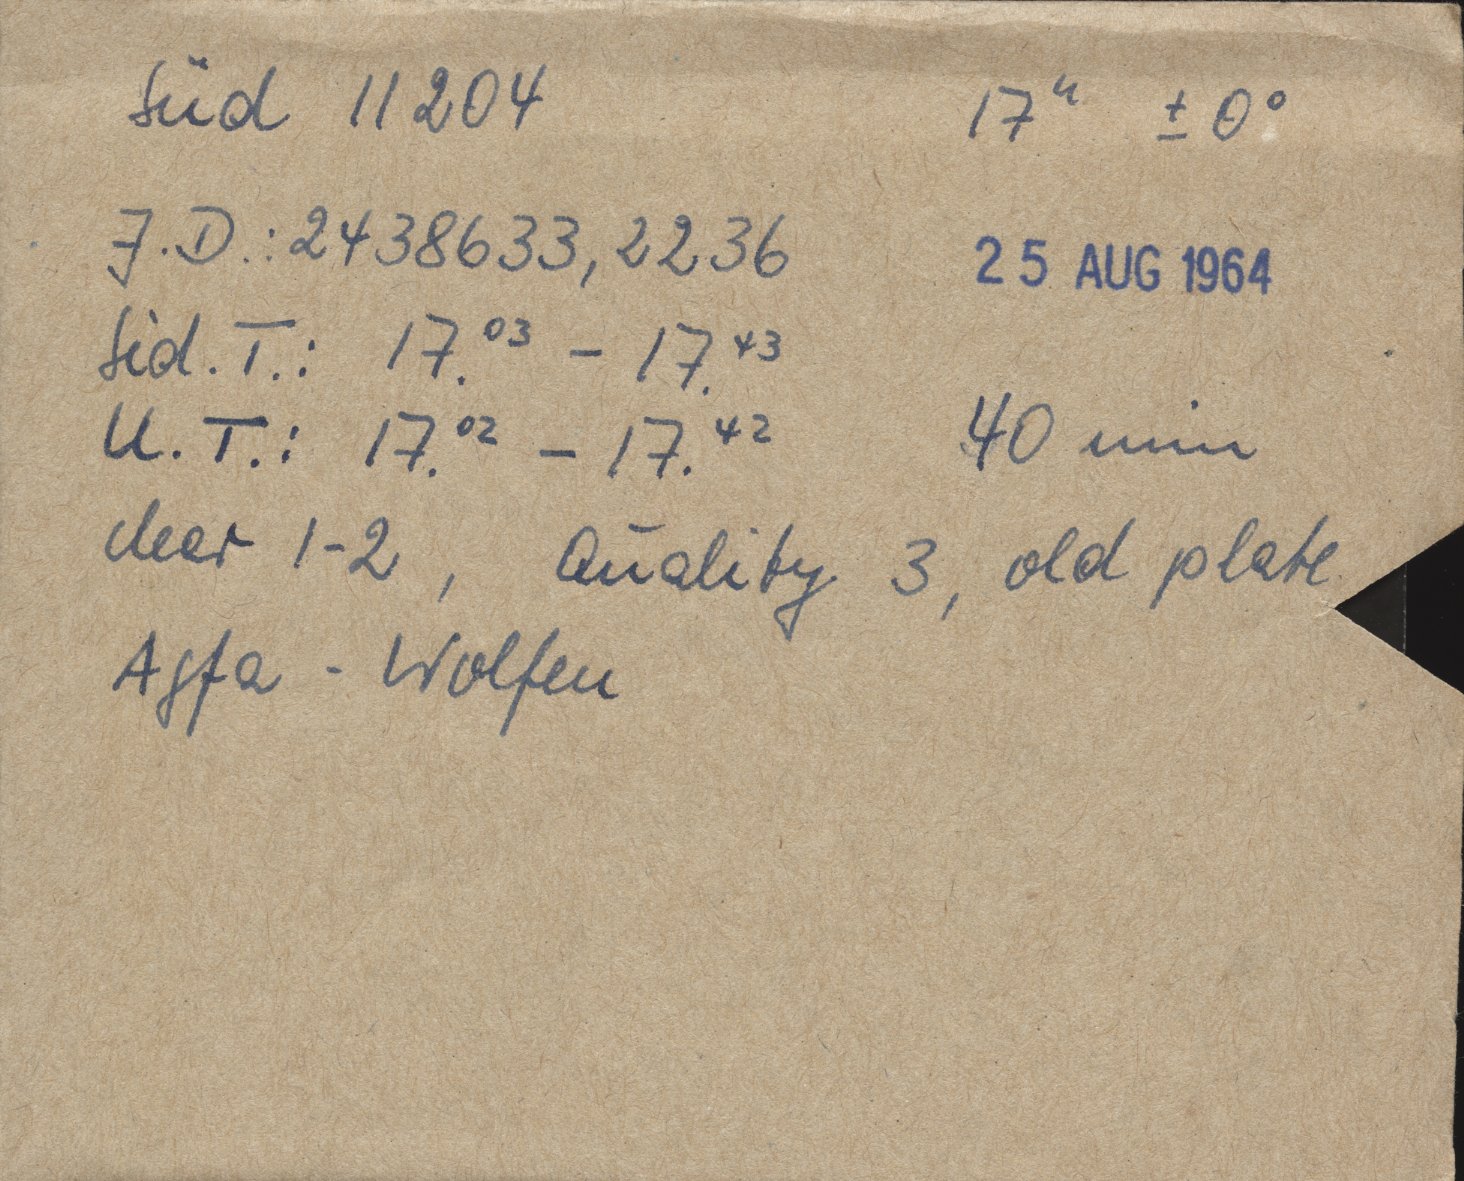 Süd 11204 17ʰ ± 0°
J.D.: 2438633,2236 25 AUG 1964
Sid. T.: 17.⁰³ – 17.⁴³
U. T.: 17.⁰² – 17.⁴² 40 min
clear 1-2, Quality 3, old plate
Agfa - Wolfen